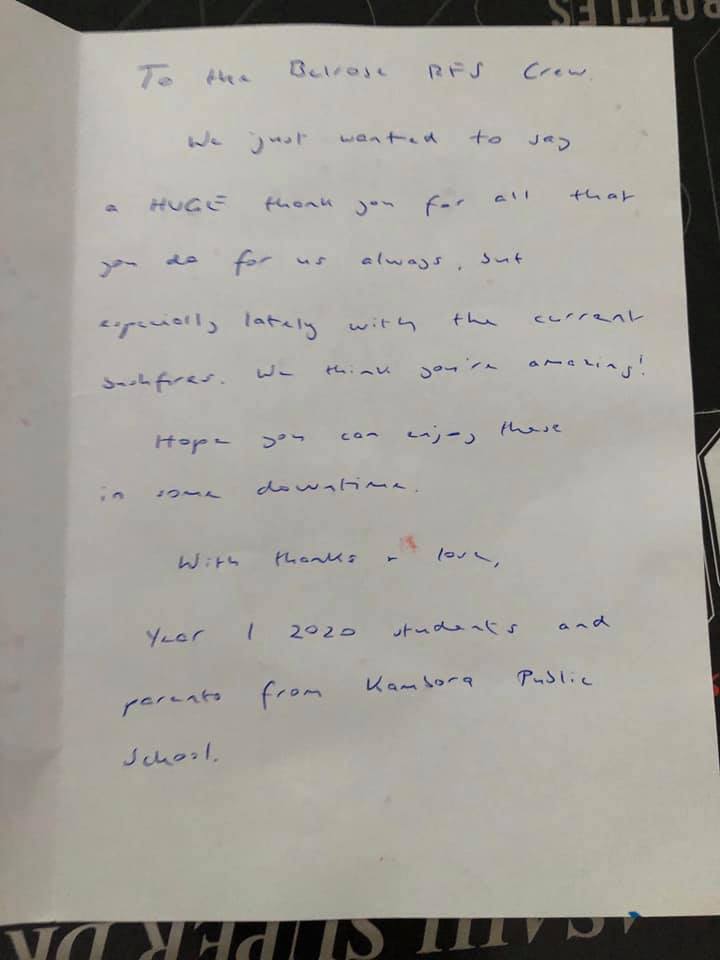 BOTTLES
To the Belrose RFS Crew.
We just wanted to say
a HUGE thank you for all that
you do for us always, but
especially lately with the current
bushfires. We think you're amazing!
Hope you can enjoy these
in some downtime.
With thanks + love,
Year 1 2020 students and
parents from Kambora Public
School.
ASAHI SUPER DR